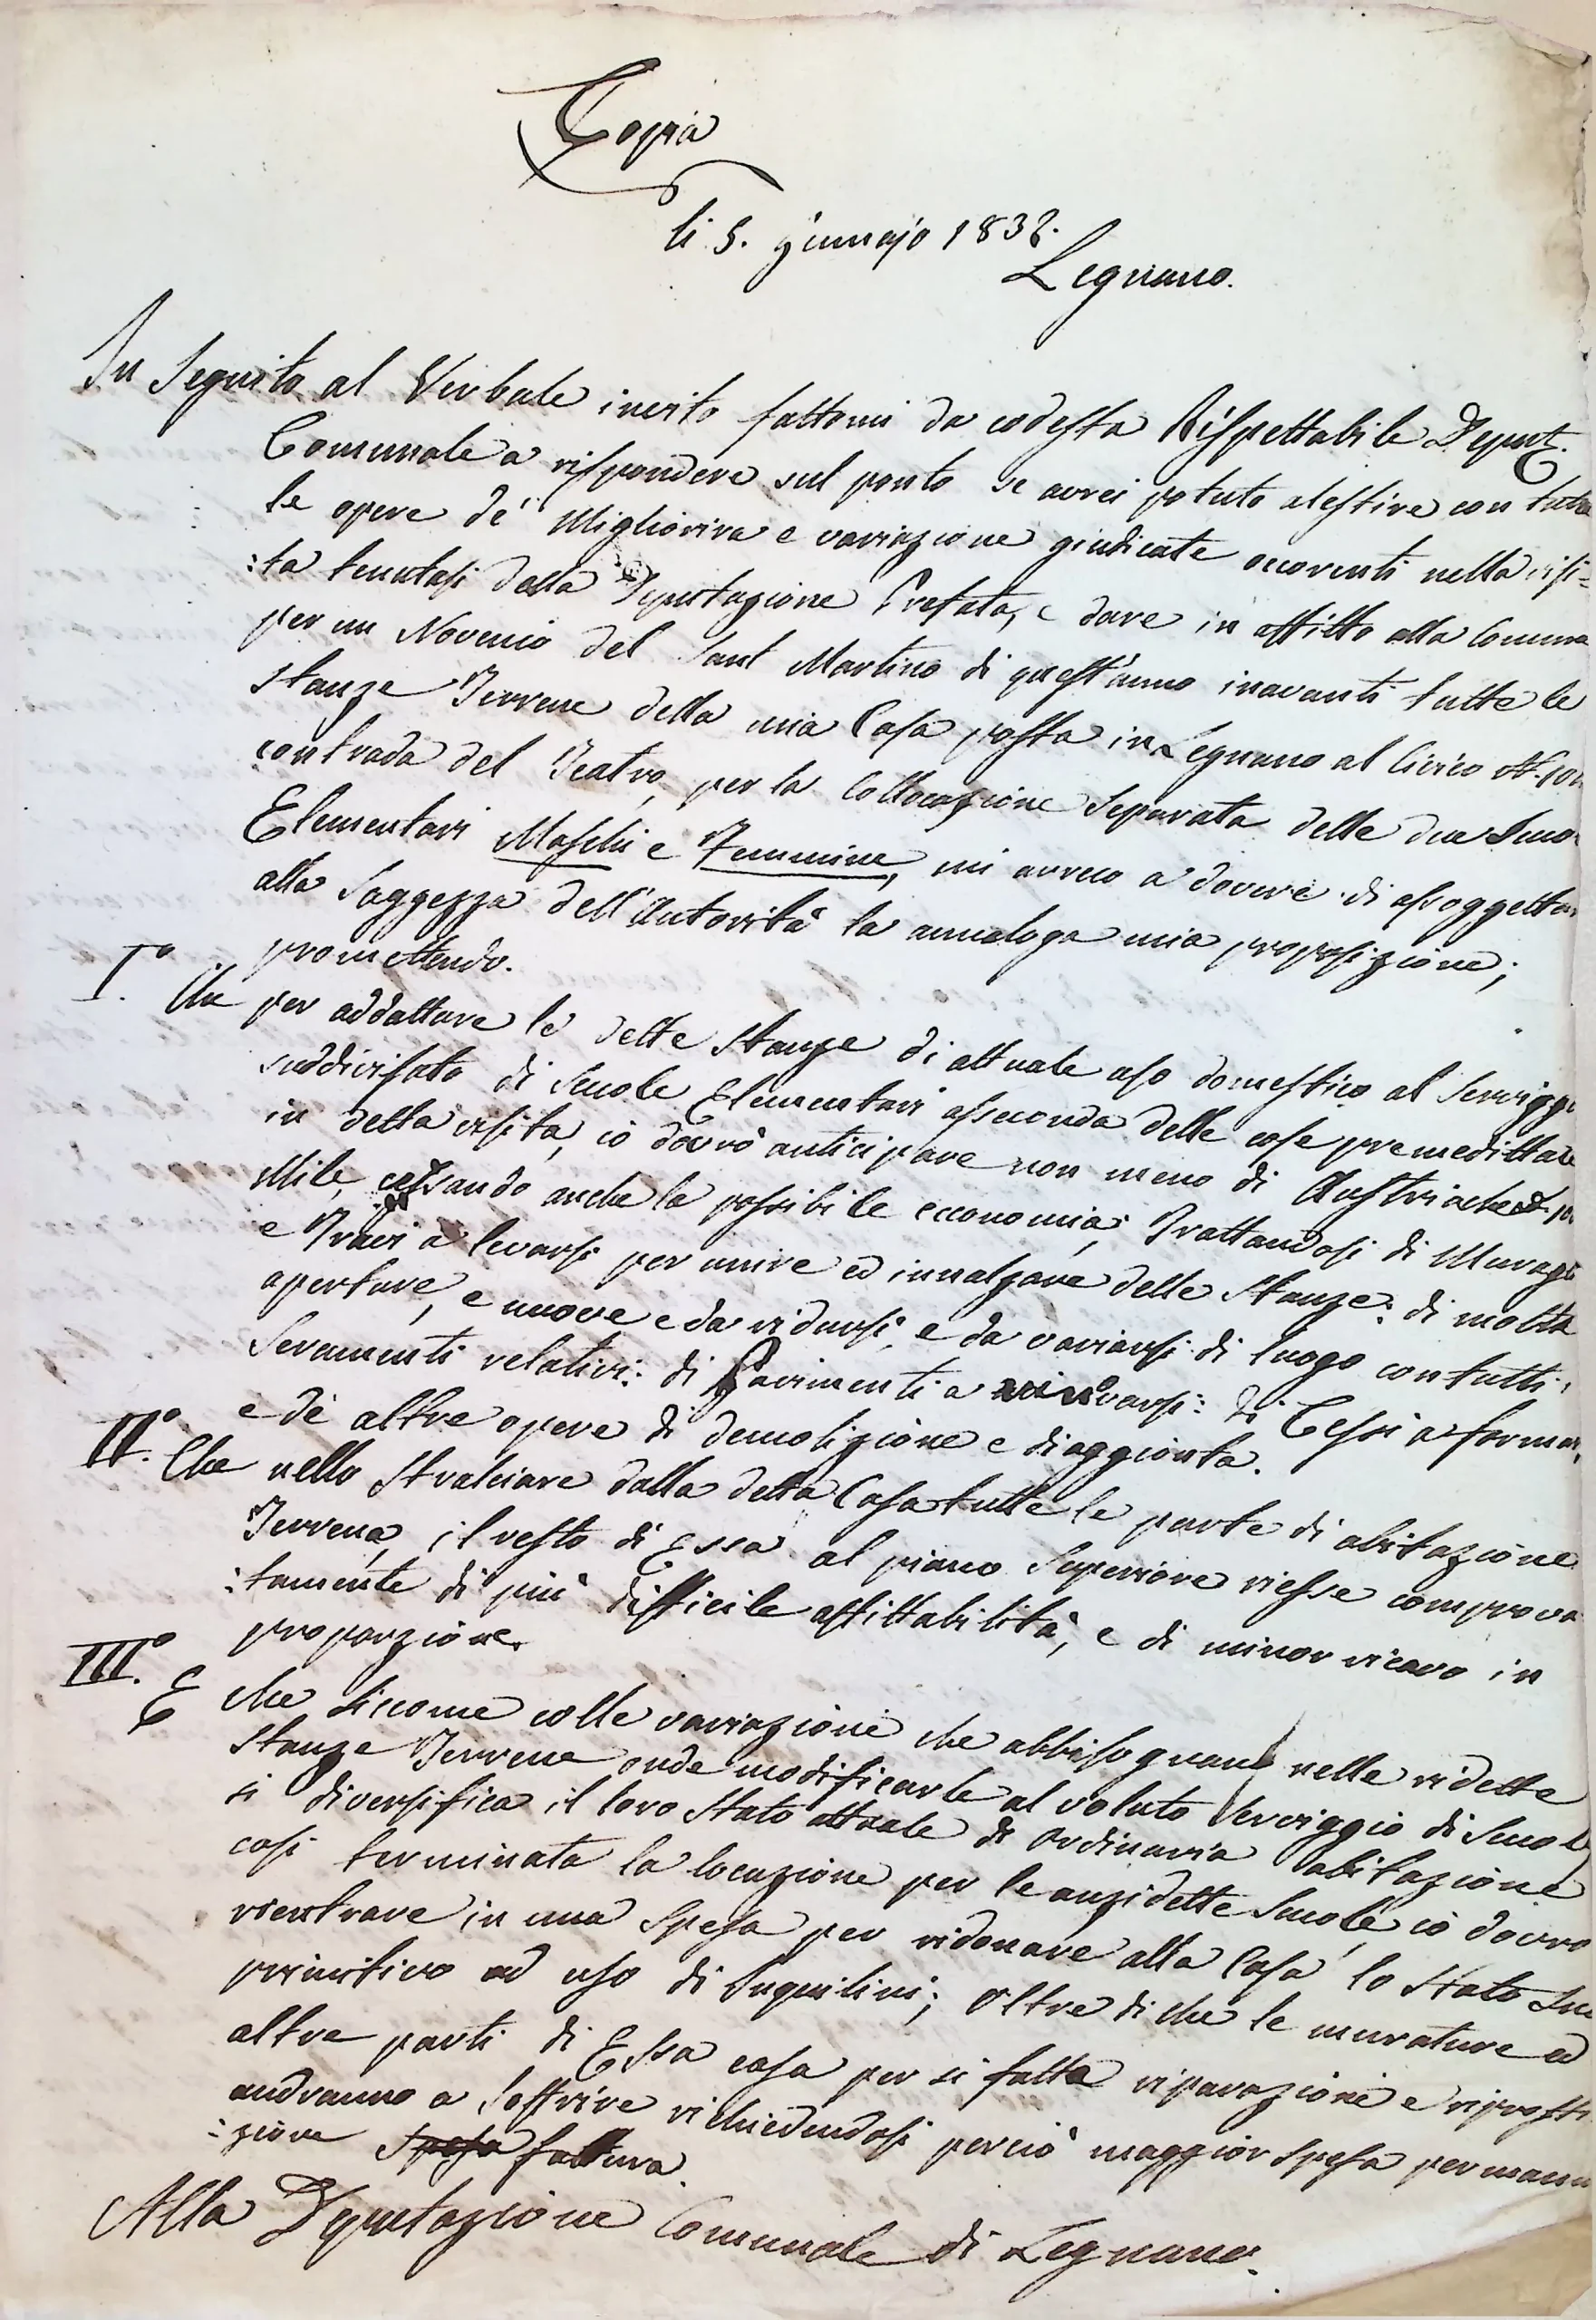 Copia
li 5. Gennajo 1838.
Legnano.
In Seguito al Verbale invito fattomi da codesta Rispettabile Deput.
Comunale a rispondere sul ponto se avrei potuto alestire con tutte
le opere de' Miglioria e variazione giudicate occorenti nella visi=
:ta tenutasi dalla Deputazione Prefata, e dare in affitto alla Comune
per un Novenio del Sant Martino di quest'anno inavanti tutte le
stanze Terrene della mia Casa posta in Legnano al Civico N.
contrada del Teatro, per la Collocazione Separata delle due Scuo
Elementari Maschi e Femmine, mi avreco a dovere di assoggettar
alla Saggezza dell'Autorità la annaloga mia proposizione;
promettendo.
I.° Che per addattare le dette Stanze di attuale uso domestico al Serviggi
suddivisato di Scuole Elementari asseconda delle cose premeditate
in detta visita, io dovrò anticipare non meno di Austriache
Mile, usando anche la possibile economia; Trattandosi di Muragli
e Travi a levarsi per unire ed innalzare delle Stanze: di molte
aperture, e nuove e da ridursi, e da variarsi di luogo con tutti i
Seramenti relativi: di Pavimenti a rinovarsi: di Cessi a formar
e dè altre opere di demolizione e di aggionta.
II.° Che nello Stralciare dalla detta Casa tutte le parte di abitazione
Terrena, il resto di Essa al piano Superiore riesse comprova
:tamente di più difficile affittabilità, e di minor ricavo in
proporzione.
III.° E che siccome colle variazione che abbisognano nelle ridette
Stanze Terrene onde modificarle al voluto Serviggio di Scuole
si diversifica il loro Stato attuale di ordinaria abitazione
così terminata la locazione per le anzidette Scuole, io dovro
rientrare in una Spesa per ridonare alla Casa lo Stato Suo
primitivo ad uso di Inquilini; Oltre di che le murature ed
altre parti di Essa casa per si fatta riparazione e riprosti
:zione Spesa fattura.
andranno a Soffrire richiedendosi perciò maggior Spesa per manu
Alla Deputazione Comunale di Legnano.